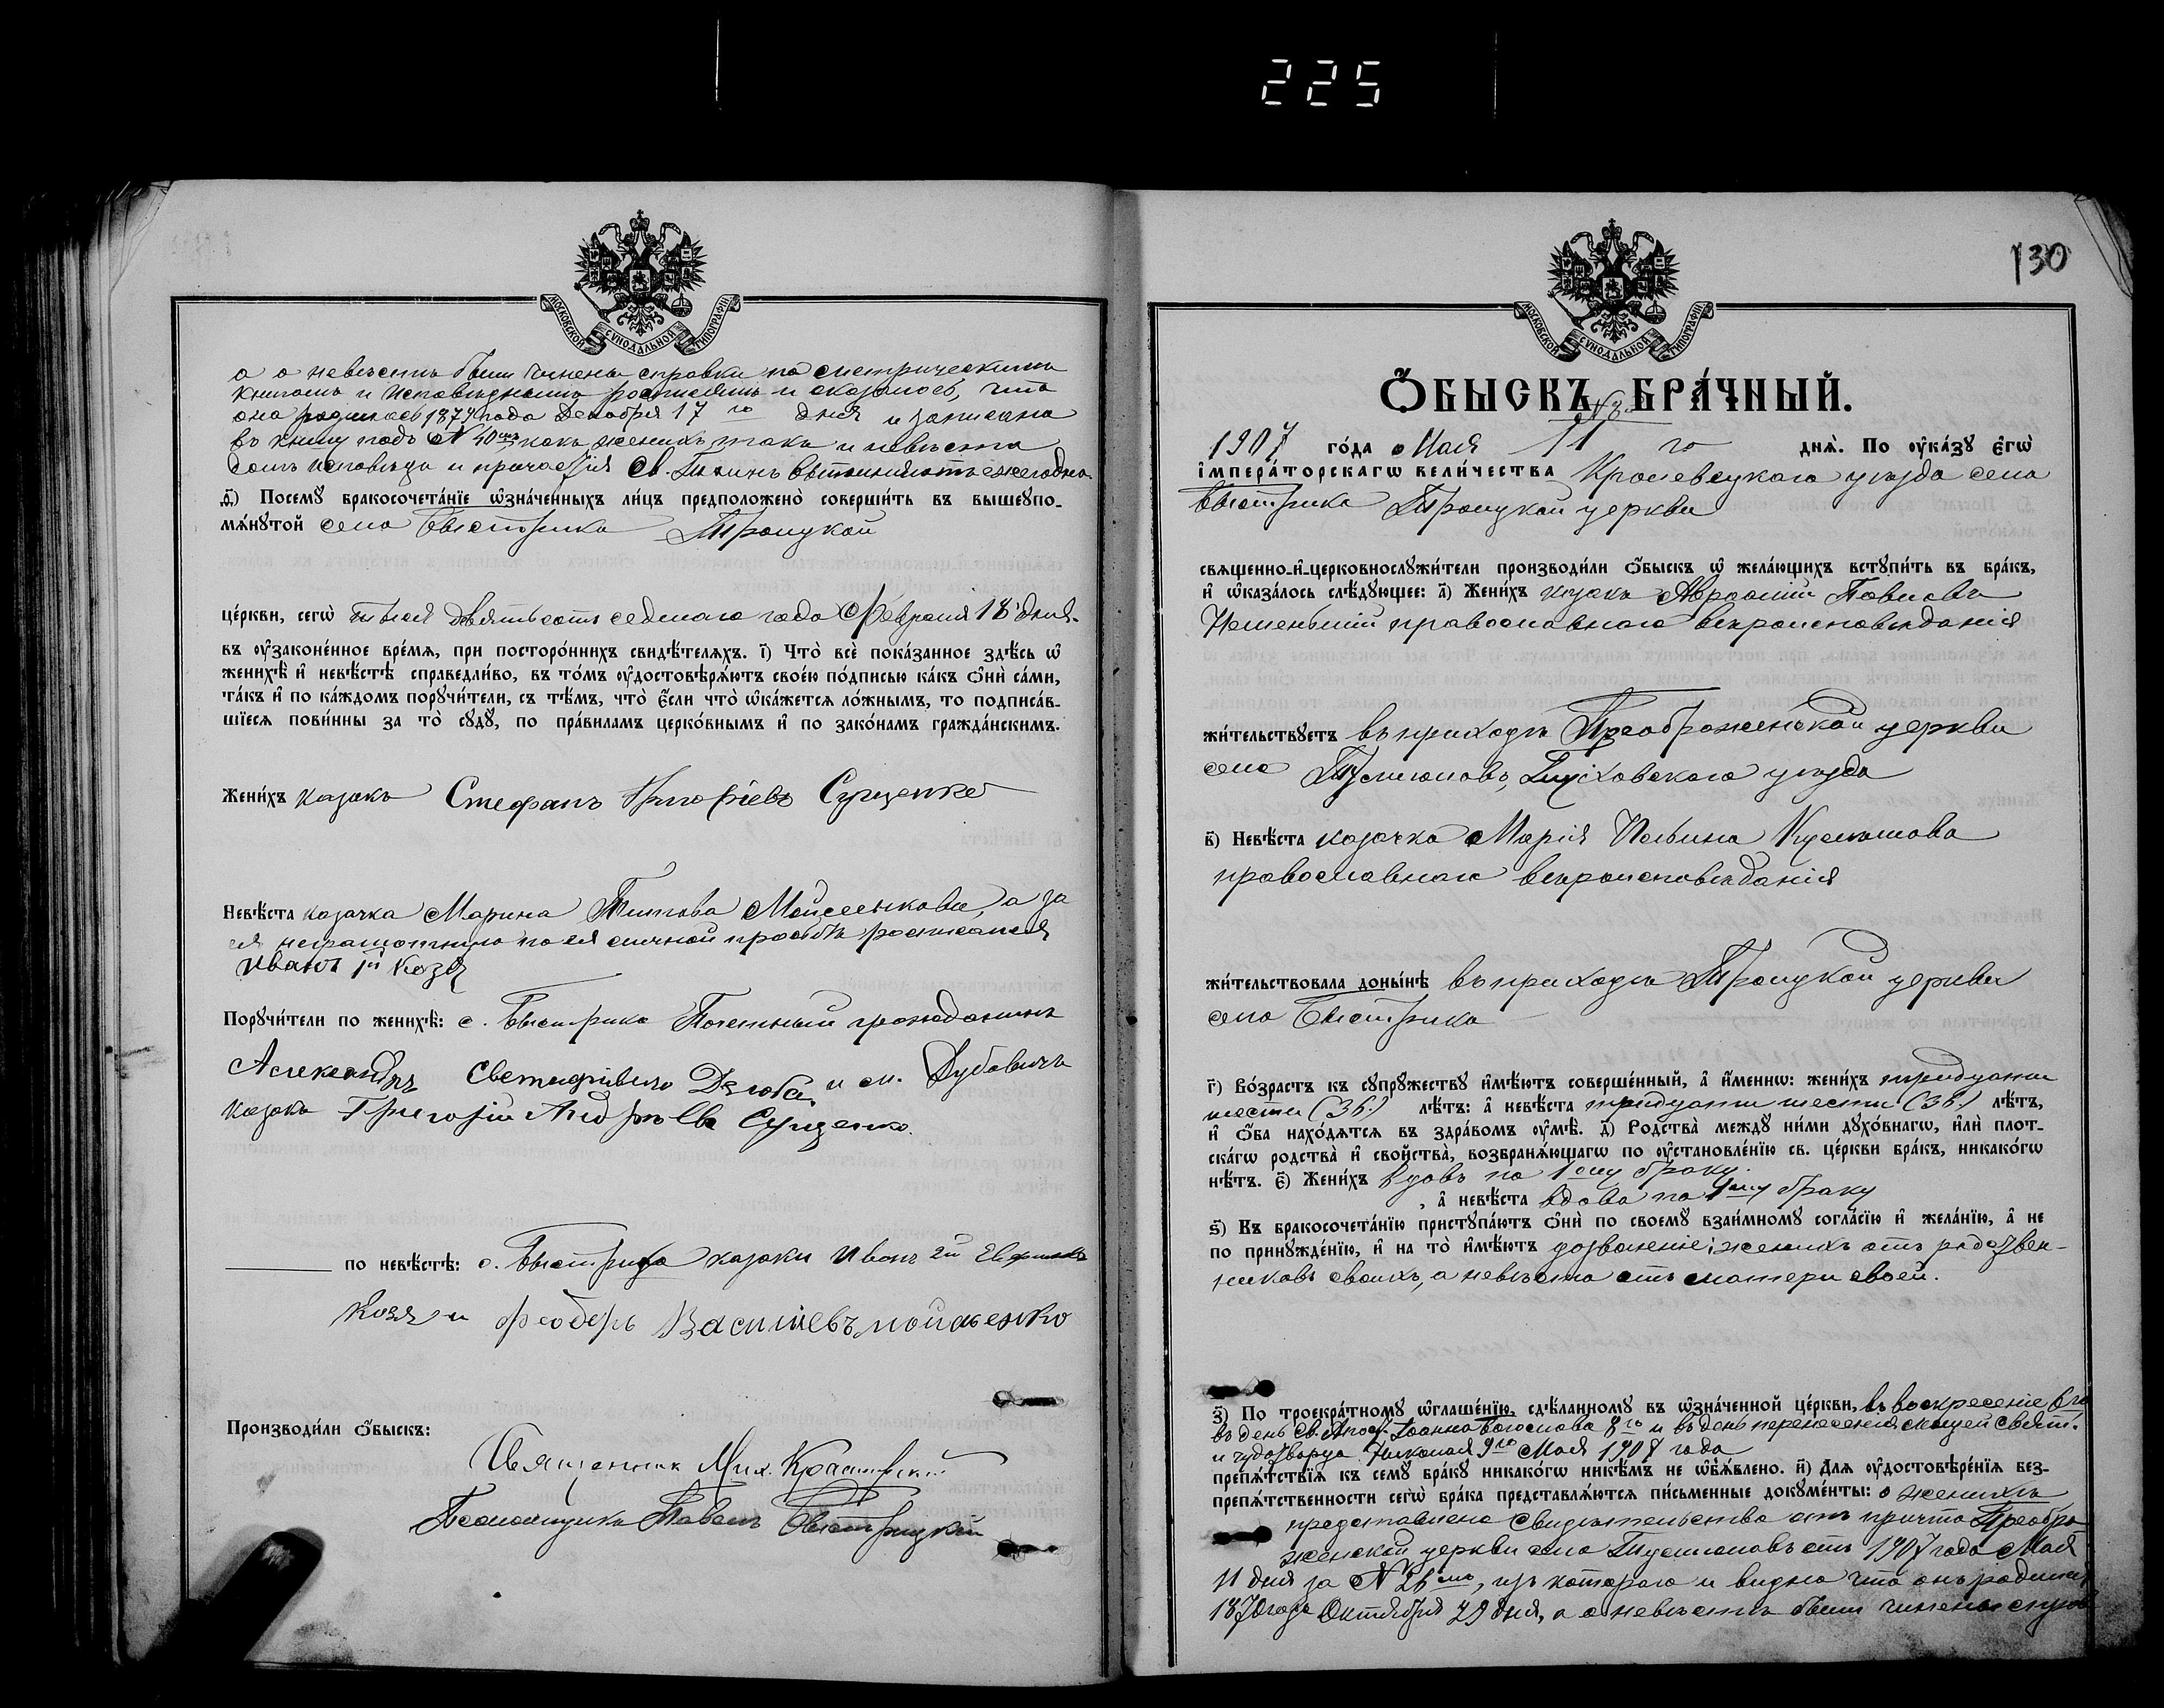 225
МОСКОВСКОЙ СѴНОДАЛЬНОЙ ТИПОГРАФІИ
а о невѣстѣ были чинены справки по метрическимъ
книгамъ и исповѣднымъ росписямъ и оказалось, что
она родилась 1874 года Декабря 17 го дня и записана
въ книгу подъ № 40, какъ женихъ такъ и невѣста
долгъ исповѣди и причастія Св. Таинъ выполняютъ ежегодно.
д҃і) Посемꙋ бракосочета́нїе ѡ҆зна́ченныхъ ли́цъ предположено̀ соверши́ть въ вышеупо-
мѧ́нꙋтой села Быстрика Троицкой
це́ркви, сегѡ̀ тысяча девятьсотъ седмаго года Февраля 18 дня.
въ ᲂу҆законе́нное вре́мѧ, при посторо́ннихъ свидѣ́телѧхъ. і҃) Что̀ всѐ пока́занное здѣ́сь ѡ҆
женихѣ̀ и҆ невѣ́стѣ справедли́во, въ то́мъ ᲂу҆достовѣрѧ́ютъ свое́ю по́дписью ка́къ ѻ҆нѝ са́ми,
та́къ и҆ по ка́ждомъ порꙋчи́тели, съ тѣ́мъ, что̀ є҆́сли что̀ ѡ҆ка́жется ло́жнымъ, то подписа́в-
шїесѧ пови́нны за то̀ сꙋдꙋ̀, по пра́виламъ церко́внымъ и҆ по зако́намъ гражда́нскимъ.
Жени́хъ казакъ Стефанъ Григоріевъ Сущенко
Невѣ́ста казачка Марина Титова Мойсеенкова, а за
ея неграмотную по ея личной просьбѣ росписался
Иванъ 1й Козя
Порꙋчи́тели по женихѣ̀: с. Быстрика Почетный гражданинъ
Александръ Дзюба и м. Дубовичъ
казакъ Григорій Андрѣевъ Сущенко.
по невѣ́стѣ: с. Быстрика казаки Иванъ 2й
Козя и Феодоръ Василіевъ Мойсеенко
Производи́ли ѻ҆́быскъ:
Священникъ Мих.
Псаломщикъ Павелъ Быстрицкій
130
МОСКОВСКОЙ СѴНОДАЛЬНОЙ ТИПОГРАФІИ
Ѻ҆́БЫСКЪ БРА́ЧНЫЙ.
№ 8
1907 го́да Мая 11 го днѧ̀. По ᲂу҆ка́зꙋ є҆гѡ̀
і҆мпера́торскагѡ вели́чества Кролевецкаго уѣзда села
Быстрика Троицкой церкви
свѧще́нно-и҆-церковнослꙋжи́тели производи́ли ѻ҆́быскъ ѡ҆ жела́ющихъ встꙋпи́ть въ бра́къ,
и҆ ѡ҆каза́лось слѣ́дꙋющее: а҃) Жени́хъ казакъ Авраамій Павловъ
православнаго вѣроисповѣданія
жи́тельствꙋетъ въ приходѣ Преображенской церкви
села Тулиголовъ, Глуховскаго уѣзда
в҃) Невѣ́ста казачка Марія Ильина
православнаго вѣроисповѣданія
жи́тельствовала доны́нѣ въ приходѣ Троицкой церкви
села Быстрика
г҃) Во́зрастъ къ сꙋпрꙋжествꙋ и҆мѣ́ютъ соверше́нный, а҆ и҆́менно: жени́хъ тридцати
шести (36.) лѣ́тъ: а҆ невѣ́ста тридцати шести (36.) лѣ́тъ,
и҆ ѻ҆́ба нахо́дятсѧ въ здра́вомъ ᲂу҆мѣ̀. д҃) Родства̀ междꙋ ни́ми дꙋхо́внагѡ, и҆лѝ плот-
ска́гѡ родства̀ и҆ свойства̀, возбранѧ́ющагѡ по ᲂу҆становле́нїю св. це́ркви бра́къ, никако́гѡ
нѣ́тъ. є҃) Жени́хъ вдовъ по 1ому браку.
, а҆ невѣ́ста вдова по 1ому браку
ѕ҃) Въ бракосочета́нїю пристꙋпа́ютъ ѻ҆нѝ по своемꙋ̀ взаи́мномꙋ согла́сїю и҆ жела́нїю, а҆ не
по принꙋжде́нїю, и҆ на то̀ и҆мѣ́ютъ дозволеніе; женихъ отъ родствен-
никовъ своихъ, а невѣста отъ матери своей.
з҃) По троекра́тномꙋ ѡ҆глаше́нїю, сдѣ́ланномꙋ въ ѡ҆зна́ченной це́ркви, въ воскресеніе 6го
въ день Св. Апос. Іоанна Богослова 8го и въ день перенесенія мощей Святит.
и чудотворца Николая 9го Мая 1907 года
препѧ́тствїѧ къ семꙋ̀ бра́кꙋ никако́гѡ никѣ́мъ не ѡ҆б̾ѧ́влено. и҃) Длѧ ᲂу҆достовѣре́нїѧ без-
препѧ́тственности сегѡ̀ бра́ка представлѧ́ютсѧ пи́сьменные докꙋме́нты: о женихѣ
представлено свидѣтельство отъ причта Преобра
женской церкви села Тулиголовъ отъ 1907 года Мая
11 дня за № 26, изъ котораго и видно что онъ родился
1870 года Октября 29 дня, а о невѣстѣ были чинены справ